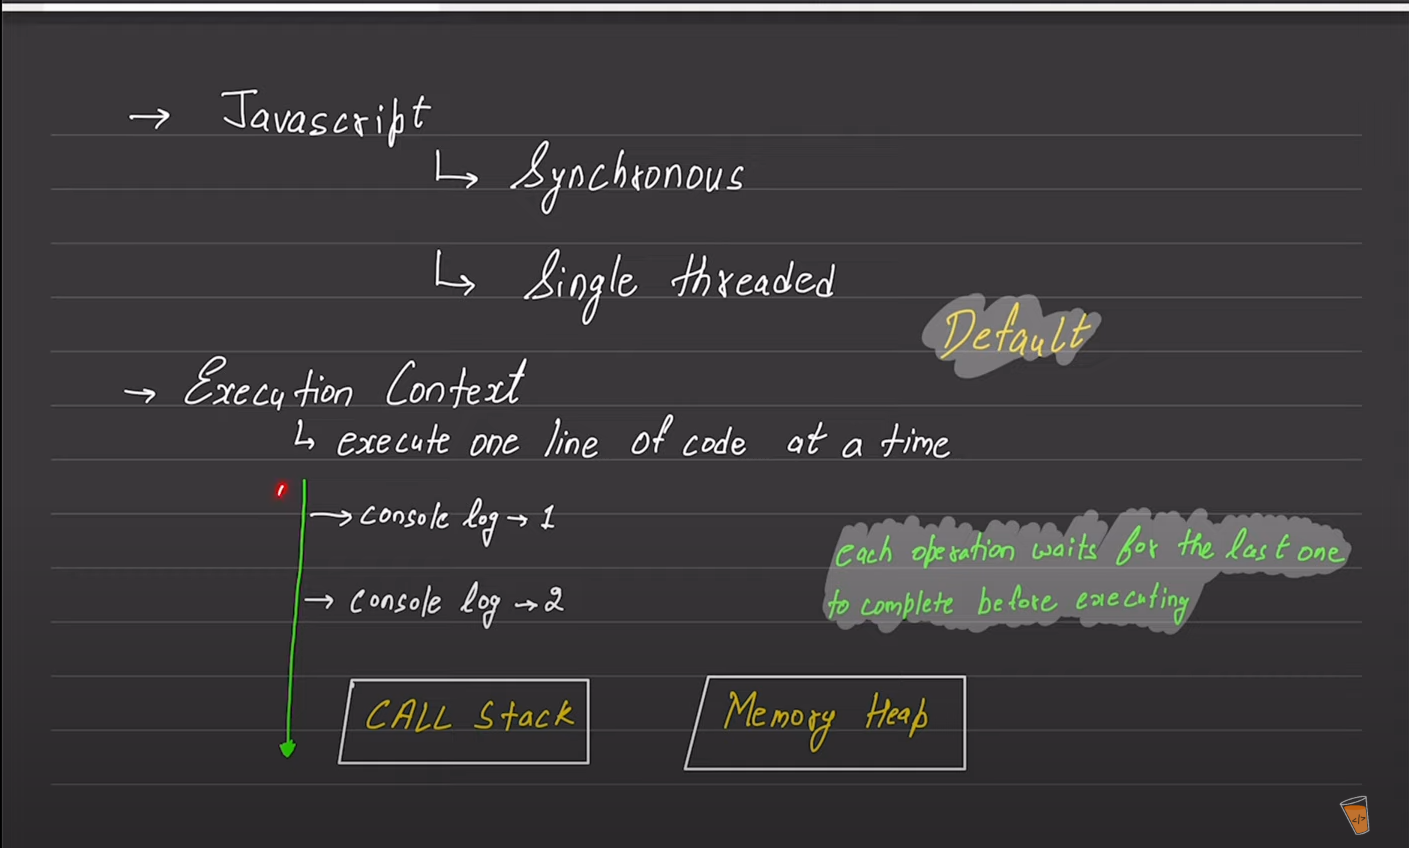 → Javascript
↳ Synchronous
↳ Single threaded
Default
→ Execution Context
↳ execute one line of code at a time
→ console log → 1
each operation waits for the last one
→ console log → 2
to complete before executing
CALL Stack
Memory Heap
</>